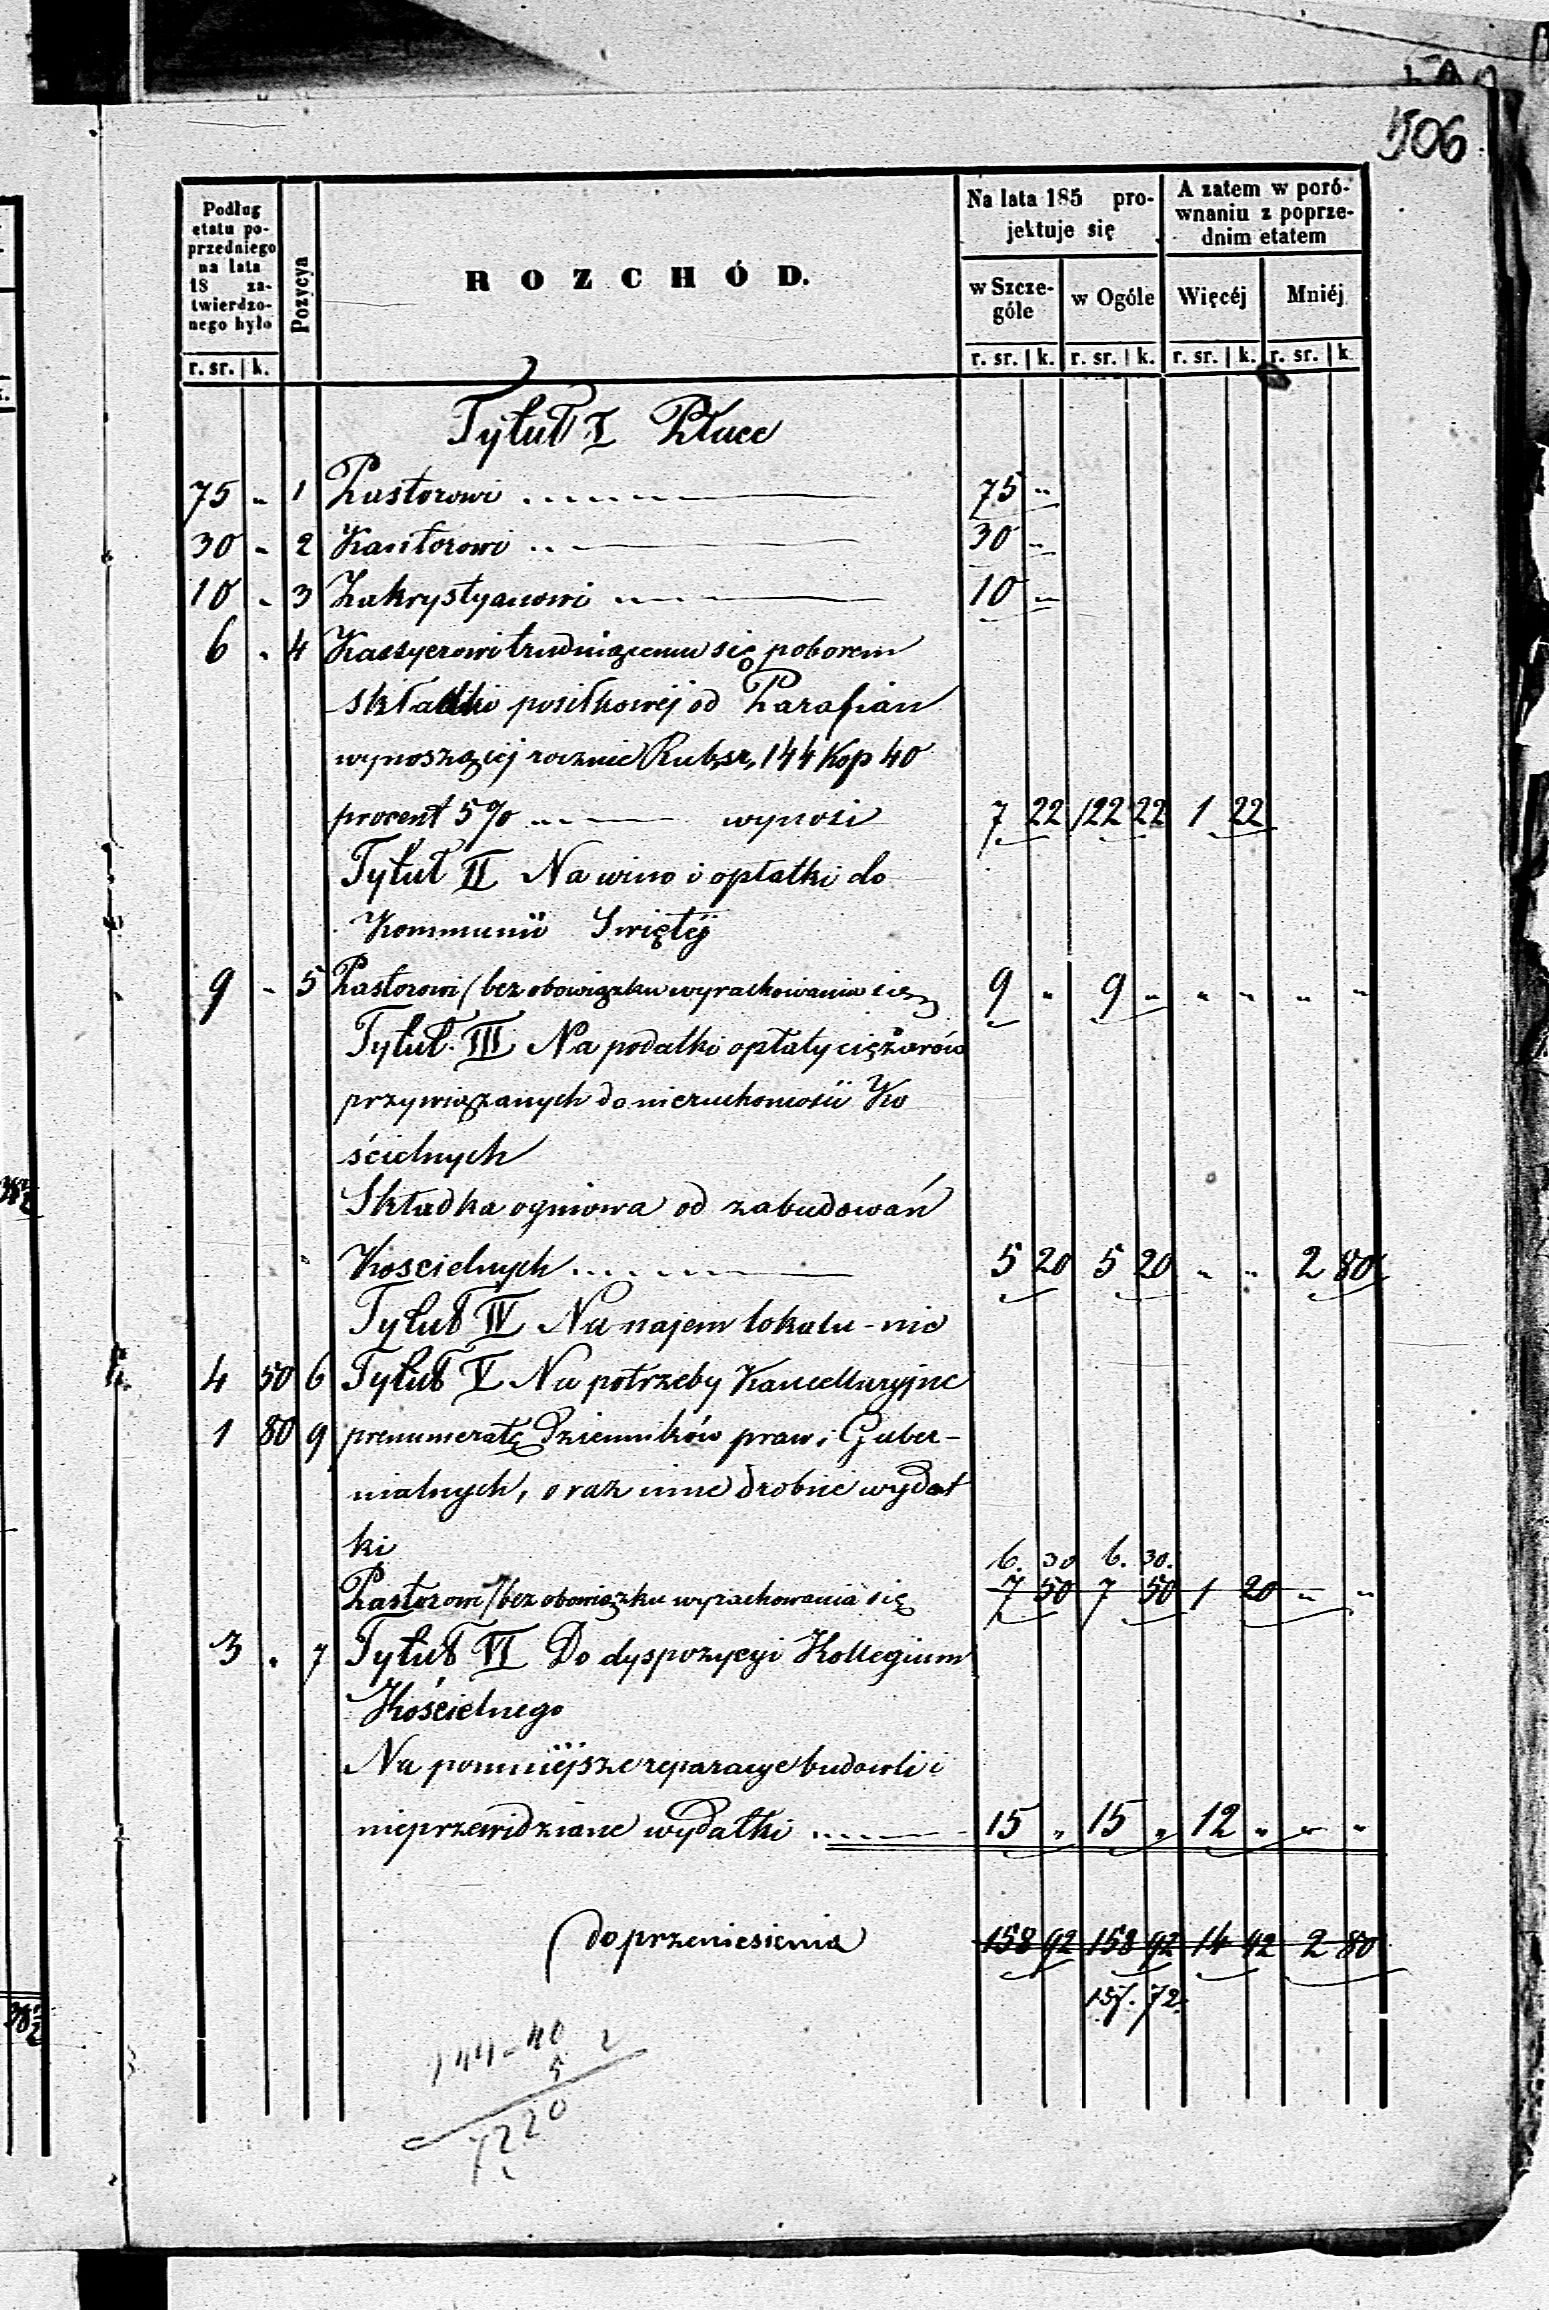 506
Podług etatu poprzedniego na lata 18 zatwierdzonego było
Pozycya
ROZCHÓD.
Na lata 185 projektuje się
A zatem w porównaniu z poprzednim etatem
w Szczególe
w Ogóle
Więcéj
Mniéj
r. sr. | k. r. sr. | k. r. sr. | k. r. sr. | k. r. sr. | k.
Tytuł I Płace
75 " 1 Pastorowi 75 "
30 " 2 Kantorowi 30 "
10 " 3 Zakrystyanowi 10 "
6 " 4 Kassyerowi trudniącemu się poborem
składki posiłkowéj od Parafian
wynoszącéj rocznie Rub. sr. 144 Kop 40
procent 5% wynosi 7 22 122 22 1 22
Tytuł II Na wino i opłatki do
Kommunii Swiętéj
9 " 5 Pastorowi / bez obowiązku wyrachowania się 9 " 9 " " " " "
Tytuł III Na podatki opłaty ciężarów
przywiązanych do nieruchomości Ko
ścielnych
Składka ogniowa od zabudowań
" Koscielnych 5 20 5 20 " " 2 80
Tytuł IV Na najem lokalu - nic
4 50 6 Tytuł V Na potrzeby Kancellaryjne
1 80 9 prenumeratę Dzienników praw i Guber-
nialnych, oraz inne drobne wydat
ki
6. 30 6. 30.
Pastorowi / bez obowiązku wyrachowania się 7 50 7 50 1 20 " "
3 " 7 Tytuł VI Do dyspozycyi Kollegium
Kościelnego
Na pomniéjsze reparacye budowli i
nieprzewidziane wydatki 15 " 15 " 12 " " "
do przeniesienia 158 92 158 92 14 42 2 80
157. 72.
144-40
5
7220